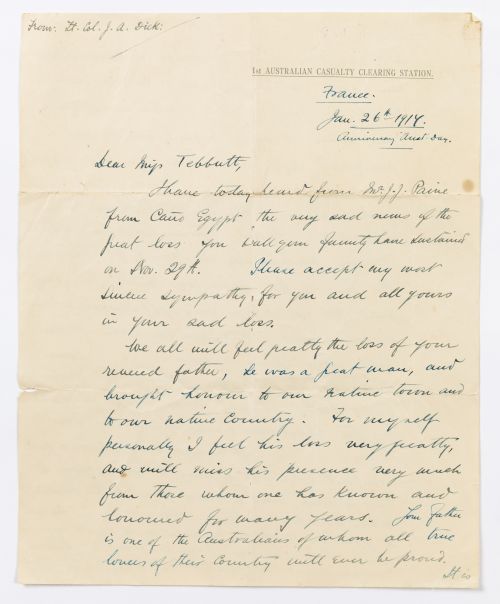 From: Lt. Col. J. A. Dick:
1st AUSTRALIAN CASUALTY CLEARING STATION.
France.
Jan. 26th 1917.
Anniversary Aust Day.
Dear Miss Tebbutt,
I have today heard from Mr. J. J. Paine
from Cairo Egypt the very sad news of the
great loss you & all your family have sustained
on Nov. 29th. Please accept my most
sincere sympathy, for you and all yours
in your sad loss.
We all will feel greatly the loss of your
revered father, he was a great man, and
brought honour to our native town and
to our native country. For myself
personally I feel his loss very greatly,
and will miss his presence very much
from those whom one has known and
honoured for many years. Your Father
is one of the Australians of whom all true
lovers of their country will ever be proud.
It is